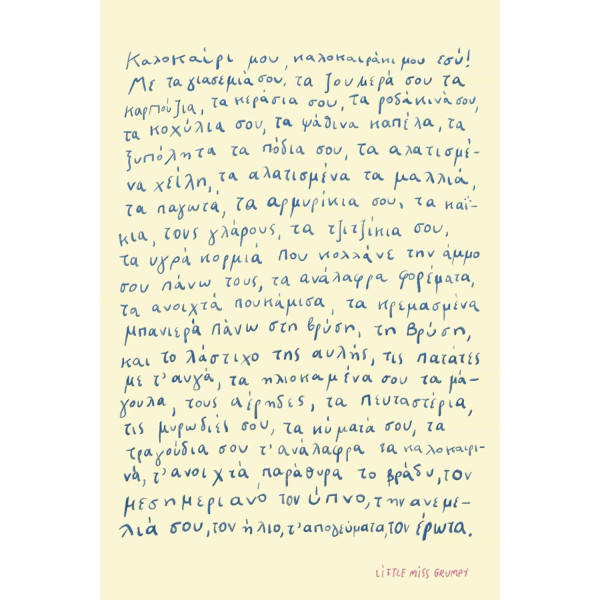 Καλοκαίρι μου, καλοκαιράκι μου εσύ!
Με τα γιασεμιά σου, τα ζουμερά σου τα
καρπούζια, τα κεράσια σου, τα ροδάκινά σου,
τα κοχύλια σου, τα ψάθινα καπέλα, τα
ξυπόλητα τα πόδια σου, τα αλατισμέ-
να χείλη, τα αλατισμένα τα μαλλιά,
τα παγωτά, τα αρμυρίκια σου, τα καΐ-
κια, τους γλάρους, τα τζιτζίκια σου,
τα υγρά κορμιά που κολλάνε την άμμο
σου πάνω τους, τα ανάλαφρα φορέματα,
τα ανοιχτά πουκάμισα, τα κρεμασμένα
μπανιερά πάνω στη βρύση, τη βρύση,
και το λάστιχο της αυλής, τις πατάτες
με τ'αυγά, τα ηλιοκαμένα σου τα μά-
γουλα, τους αέρηδες, τα πευταστέρια,
τις μυρωδιές σου, τα κύματά σου, τα
τραγούδια σου τ'ανάλαφρα τα καλοκαιρι-
νά, τ'ανοιχτά παράθυρα το βράδυ, τον
μεσημεριανό τον ύπνο, την ανεμε-
λιά σου, τον ήλιο, τ'απογεύματα, τον έρωτα.
LITTLE MISS GRUMPY